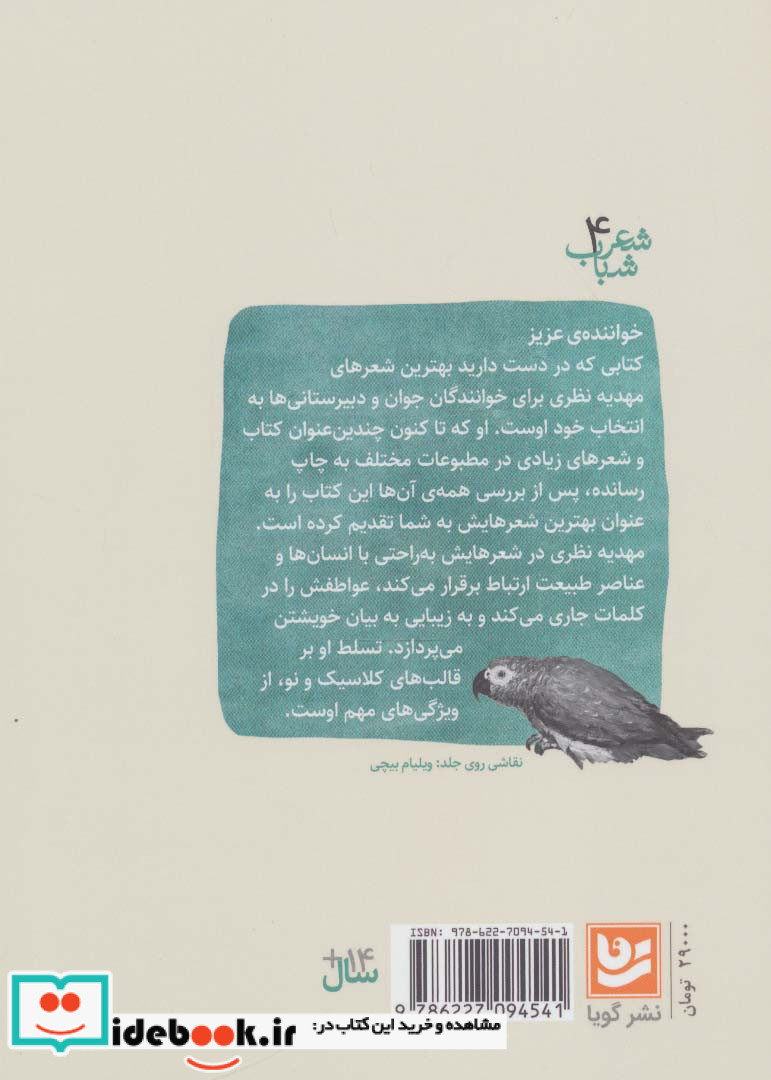 شعر
شباب
۴
خواننده‌ی عزیز
کتابی که در دست دارید بهترین شعرهای
مهدیه نظری برای خوانندگان جوان و دبیرستانی‌ها به
انتخاب خود اوست. او که تا کنون چندین‌عنوان کتاب
و شعرهای زیادی در مطبوعات مختلف به چاپ
رسانده، پس از بررسی همه‌ی آن‌ها این کتاب را به
عنوان بهترین شعرهایش به شما تقدیم کرده است.
مهدیه نظری در شعرهایش به‌راحتی با انسان‌ها و
عناصر طبیعت ارتباط برقرار می‌کند، عواطفش را در
کلمات جاری می‌کند و به زیبایی به بیان خویشتن
می‌پردازد. تسلط او بر
قالب‌های کلاسیک و نو، از
ویژگی‌های مهم اوست.
نقاشی روی جلد: ویلیام بیچی
+۱۴
سال
ISBN: 978-622-7094-54-1
9 786227 094541
نشر گویا
۲۹۰۰۰ تومان
idebook.ir
مشاهده و خرید این کتاب در: